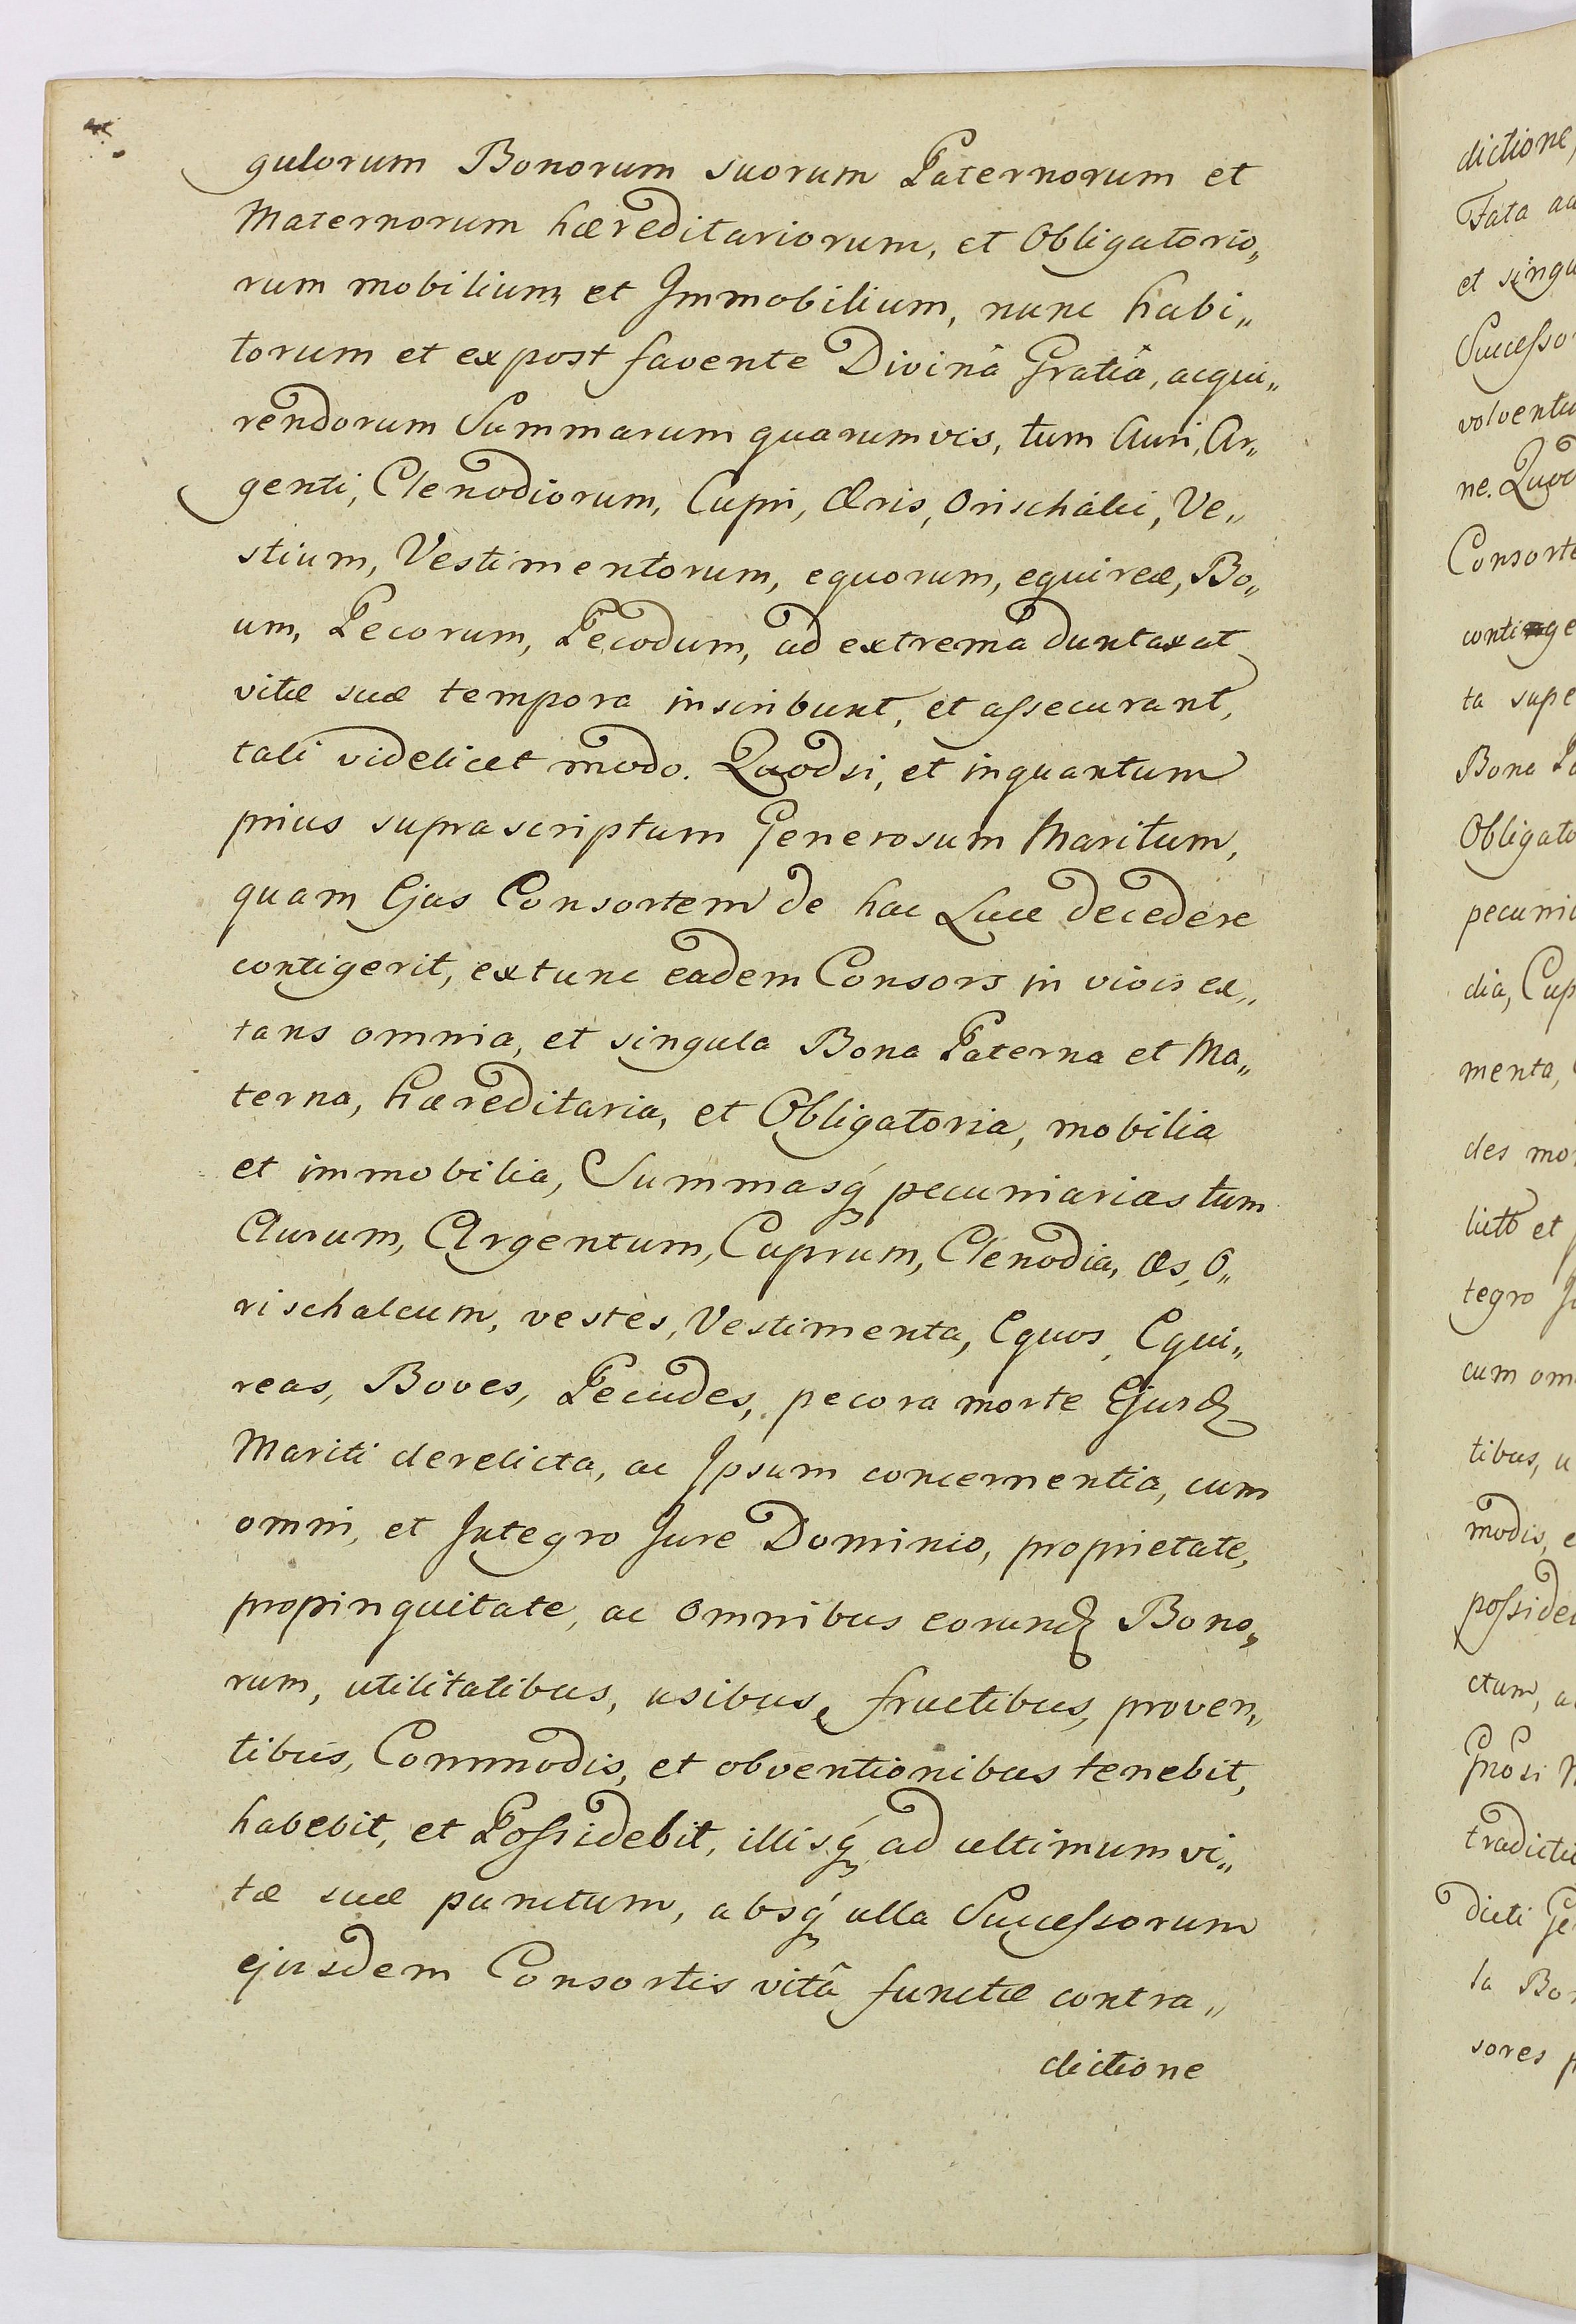 gulorum Bonorum suorum Paternorum et
Maternorum hæreditariorum, et Obligatorio„
rum mobilium et Immobilium, nunc habi„
torum et expost favente Divinâ Gratiâ, acqui„
rendorum Summarum quarumvis, tum Auri, Ar„
genti, Clenodiorum, Cupri, Æris, Orischalci, Ve„
stium, Vestimentorum, equorum, equireæ, Bo„
um, Pecorum, Pecodum, ad extrema duntaxat
vitæ suæ tempora inscribunt, et assecurant,
tali videlicet modo. Quodsi, et inquantum
prius suprascriptum Generosum Maritum,
quam Ejus Consortem de hac Luce decedere
contigerit, extunc eadem Consors in vivis ex„
tans omnia, et singula Bona Paterna et Ma„
terna, hæreditaria, et Obligatoria, mobilia
et immobilia, Summasq́ pecuniarias tum
Aurum, Argentum, Cuprum, Clenodia, æs, O„
rischalcum, vestes, Vestimenta, Equos, Equi„
reas, Boves, Pecudes, pecora morte Ejusd
Mariti derelicta, ac Ipsum concernentia, cum
omni, et Integro Jure Dominio, proprietate,
propinquitate, ac omnibus eorund Bono„
rum, utilitatibus, usibus, fructibus, proven„
tibus, Commodis, et obventionibus tenebit,
habebit, et Possidebit, illisq́ ad ultimum vi„
tæ suæ punctum, absq́ ulla Successorum
ejusdem Consortis vitâ functæ contra„
dictione
dictione,
Fata
et singu
Successo
volventu
ne. Quod
Consorte
continge
ta supe
Bona
Obligato
pecuni
dia, Cup
menta,
des mo
licto et
tegro
cum om
tibus, u
modis, e
posside
ctum, a
Gnosi
tradicti
dicti Ge
la Bo
sores p